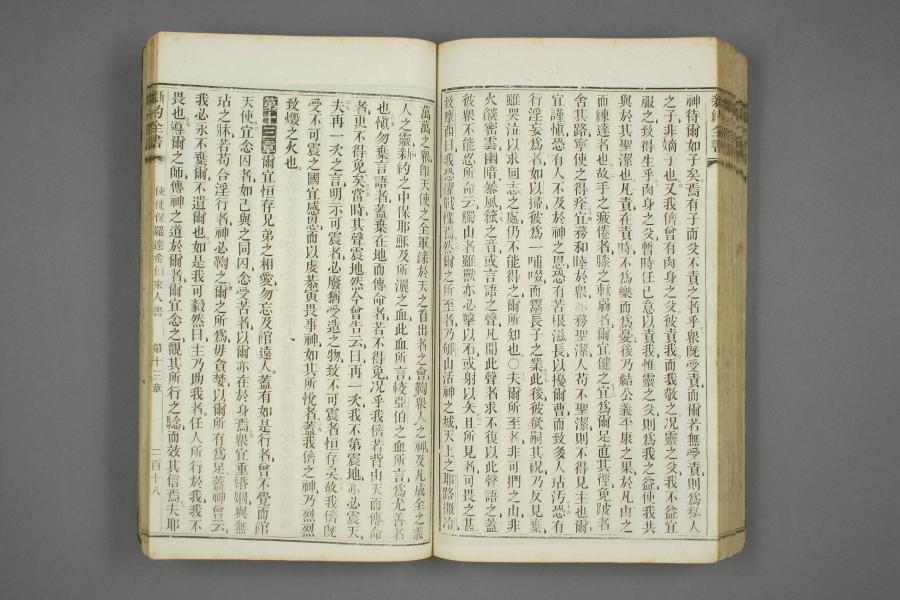 神待爾如子矣焉有子而父不責之者乎眾既受責而爾若無受責則爲私人
之子非嫡子也又我儕曾有肉身之父彼責我而我敬之況靈之父我不益宜
服之致得生乎肉身之父暫時任己意以責我惟靈之父則爲我之益使我共
與於其聖潔也凡責在責時不爲樂而爲憂後乃結公義平康之果於凡由之
而練達者也故手之疲倦者膝之軟弱者爾宜健之宜爲爾足直其徑免跛者
舍其路寧使之得痊宜務和睦於眾亦務聖潔人苟不聖潔則不得見主也爾
宜謹愼恐有人不及於神之恩恐有苦根滋長以擾爾曹而致多人玷污恐有
行淫妄爲者如以掃彼爲一哺啜而鬻長子之業此後彼欲嗣其祝乃反見棄
雖哭泣以求回志之處仍不能得之爾所知也○夫爾所至者非可捫之山非
火燄密雲幽暗暴風號之音或言語之聲凡聞此聲者求不復以此聲語之蓋
彼眾不能忍所命云觸山者雖獸亦必擊以石或射以矢且所見者可畏之甚
致摩西曰我恐懼戰慄焉然爾之所至者乃郇山活神之城天上之耶路撒冷
萬萬之眾卽天使之全軍錄於天之首出者之會鞫眾人之神及凡成全之義
人之靈新約之中保耶穌及所灑之血此血所言較亞伯之血所言爲尤善者
也愼勿棄言語者蓋棄在地而傳命者若不得免況乎我儕若背由天而傳命
者更不得免矣當時其聲震地然今曾告云曰再一次我不第震地亦必震天
夫再一次之言明示可震者必廢猶受造之物致不可震者恒存矣故我儕既
受不可震之國宜感恩而以虔恭寅畏事神如其所悅者蓋我儕之神乃烈烈
致燬之火也
第十三章爾宜恒存兄弟之相愛勿忘及館遠人蓋有如是行者曾不覺而館
天使宜念囚者如己與之同囚念受苦者以爾亦在於身焉眾宜重婚姻與無
玷之牀若苟合淫行者神必鞫之爾之所爲毋貪婪以爾所有爲足蓋神曾云
我必永不棄爾不遺爾也如是我可毅然曰主乃助我者任人所行於我我不
畏也導爾之師傳神之道於爾者爾宜念之觀其所行之驗而效其信焉夫耶
新約全書 使徒保羅達希伯來人書 第十三章 二百十八